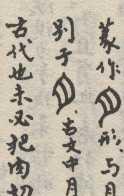 篆作形,与月
别于古文中月
古代也未必把肉切